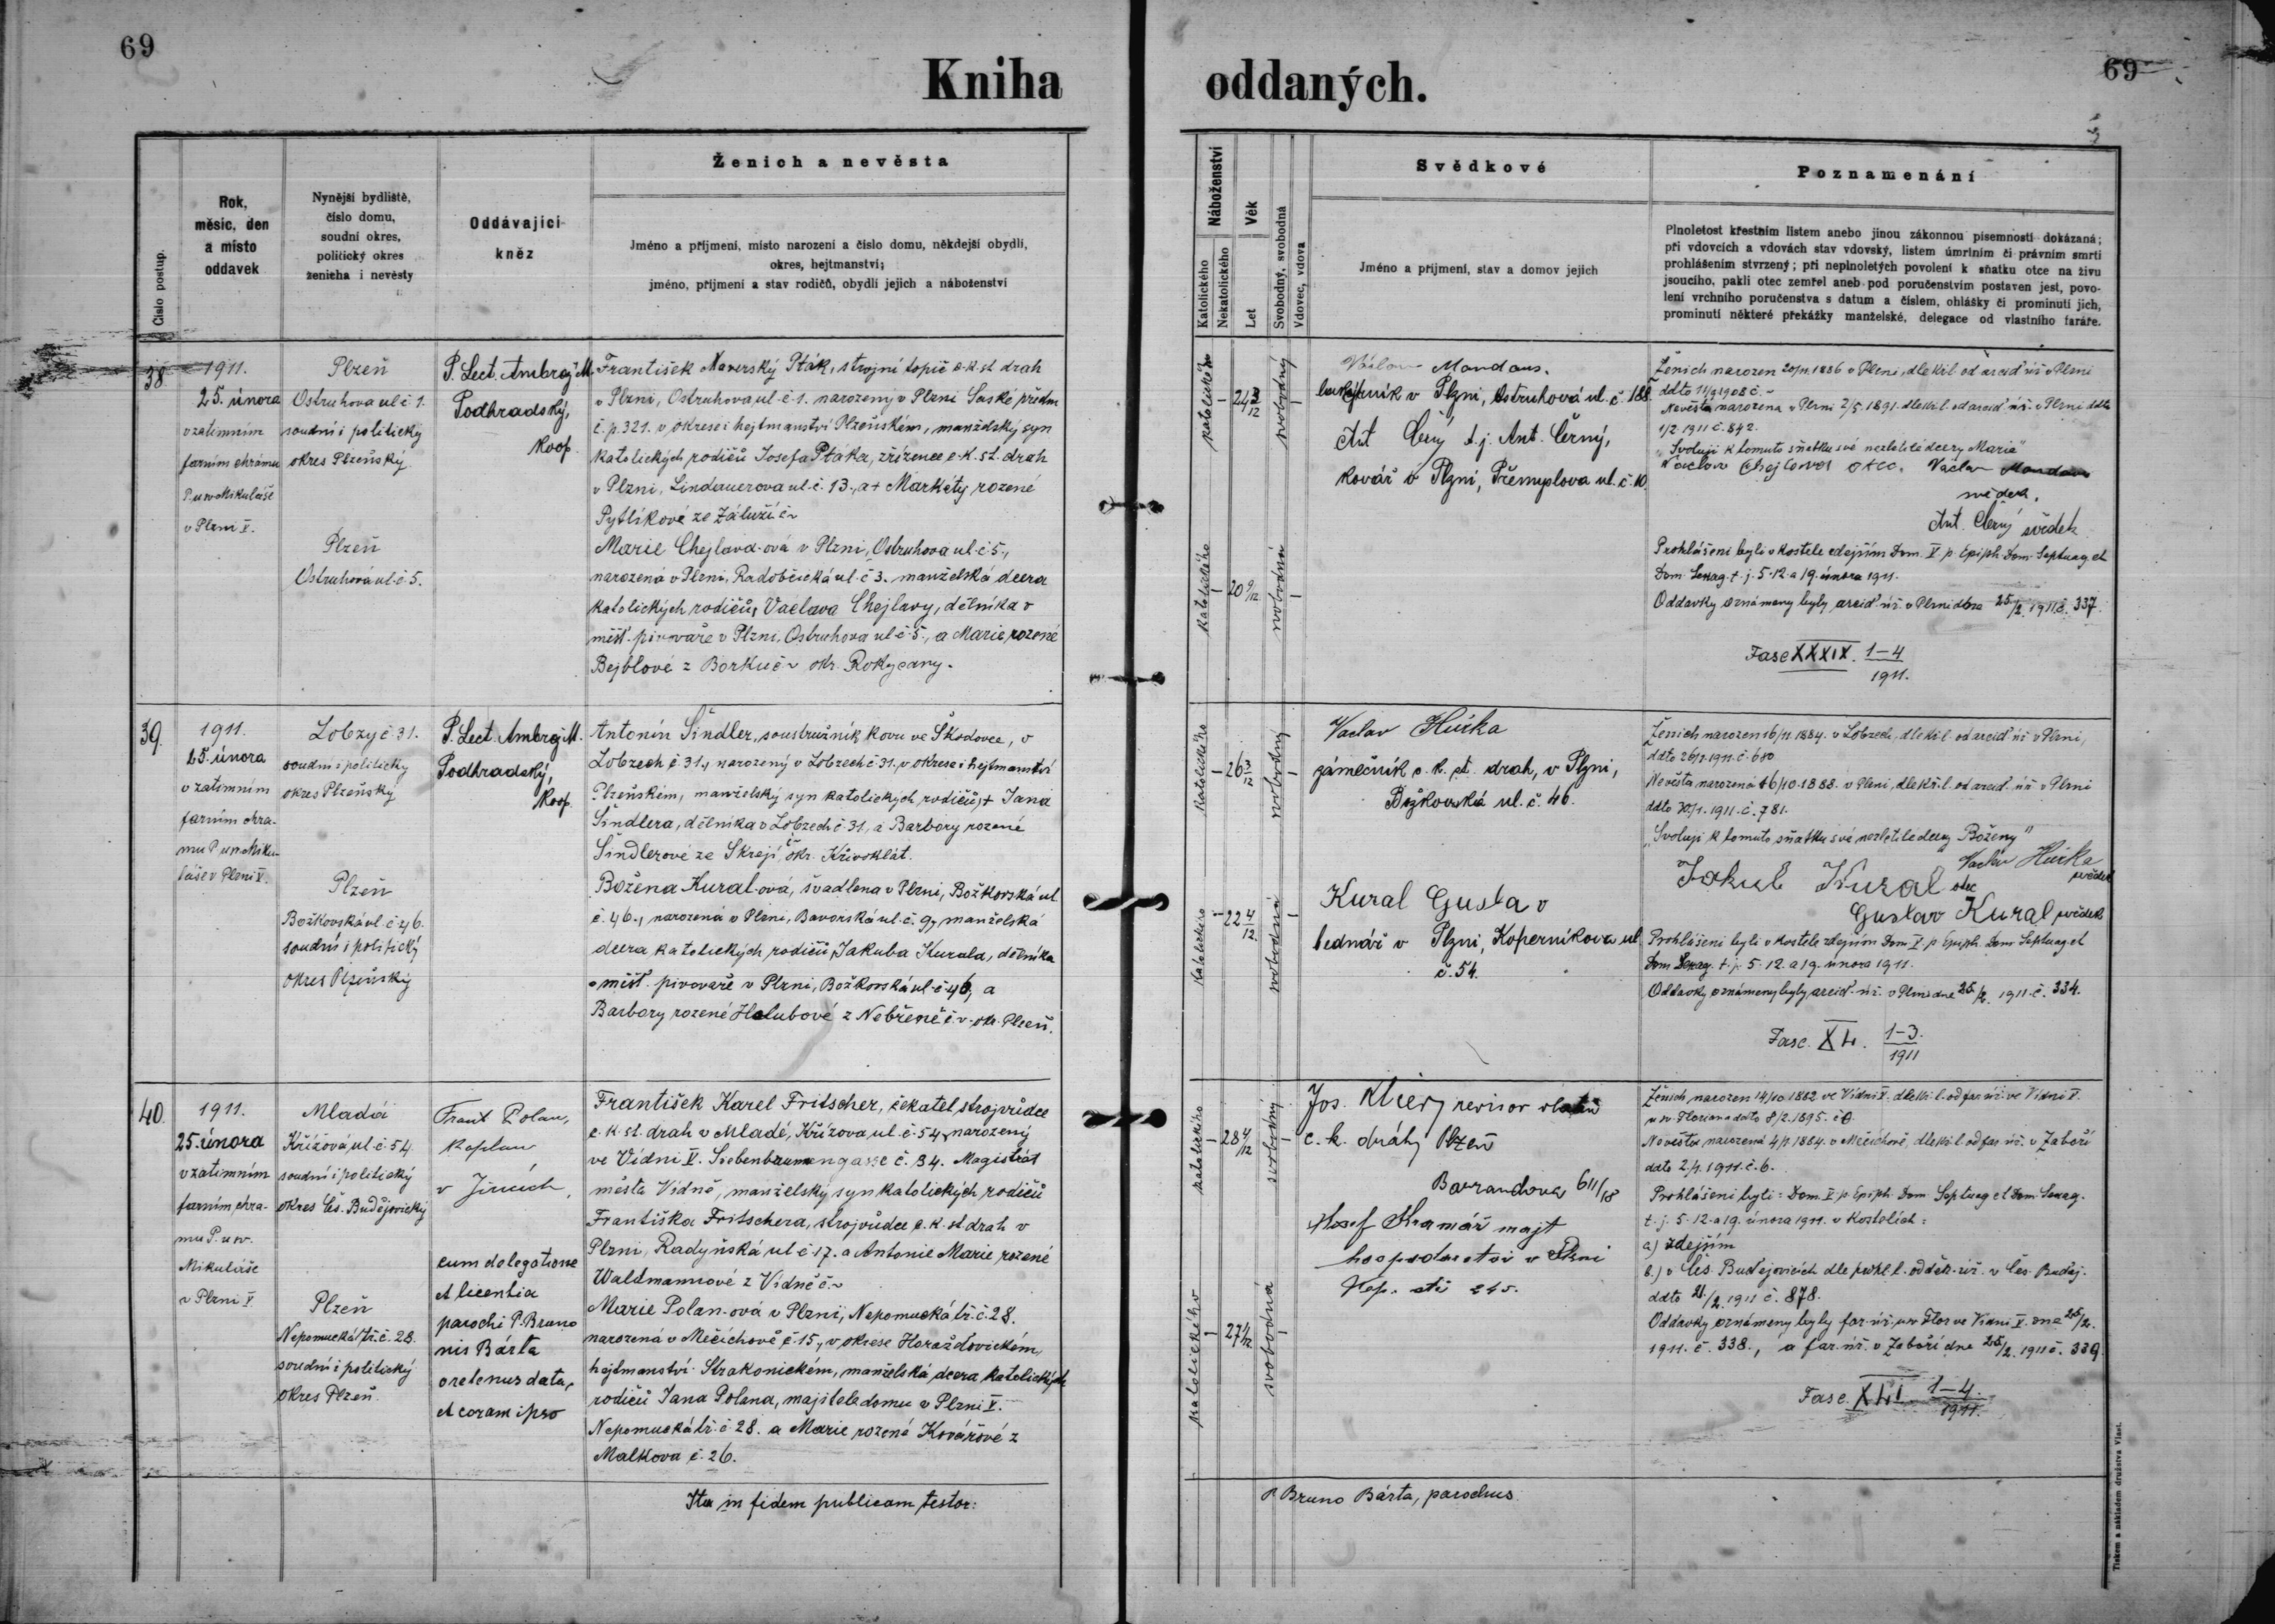 69
Kniha
oddaných.
69
Číslo postup.
Rok,
měsíc, den
a místo
oddavek
Nynější bydliště,
číslo domu,
soudní okres,
politický okres
ženicha i nevěsty
Oddávající
kněz
Ženich a nevěsta
Jméno a příjmení, místo narození a číslo domu, někdejší obydlí,
okres, hejtmanství;
jméno, příjmení a stav rodičů, obydlí jejich a náboženství
Náboženství
Katolického
Nekatolického
Věk
Let
Svobodný, svobodná
Vdovec, vdova
Svědkové
Jméno a příjmení, stav a domov jejich
Poznamenání
Plnoletost křestním listem anebo jinou zákonnou písemností dokázaná;
při vdovcích a vdovách stav vdovský, listem úmrtním či právním smrti
prohlášením stvrzený; při neplnoletých povolení k sňatku otce na živu
jsoucího, pakli otec zemřel aneb pod poručenstvím postaven jest, povo-
lení vrchního poručenstva s datum a číslem, ohlášky či prominutí jich,
prominutí některé překážky manželské, delegace od vlastního faráře.
38
1911.
25. února
v zatimním
farním chrámu
P. u sv. Mikuláše
v Plzni V.
Plzeň
Ostruhova ul č 1.
soudní i politický
okres Plzeňský
Plzeň
Ostruhová ul. č 5.
P. Lect. Ambrož M.
Podhradský,
koop.
František Maverský Pták, strojní topič c. k. st drah
v Plzni, Ostruhova ul. č 1. narozený v Plzni Saské předm
č. p. 321. v okrese i hejtmanství Plzeňském, manželský syn
katolických rodičů Josefa Ptáka, zřízence c. k. st. drah
v Plzni, Lindauerova ul. č. 13., a + Markéty rozené
Pytlíkové ze Záluží č ~
Marie Chejlava-ová v Plzni, Ostruhova ul. č 5.,
narozená v Plzni, Radobčická ul. č 3. manželská dcera
katolických rodičů, Václava Chejlavy, dělníka v
měšť. pivovaře v Plzni, Ostruhova ul č 5, a Marie, rozené
Bejblové z Borku č ~ okr. Rokycany.
katolického
24 3/12
svobodný
katolického
20 9/12
svobodná
Václav Mandaus.
v Plzni, Ostruhová ul. č 188.
Ant Černý t. j. Ant. Černý,
kovář v Plzni, Přemyslova ul. č. 10.
Ženich narozen 20/11. 1886 v Plzni, dle kř. l. od arciď úř. v Plzni
ddto 11/9 1908 č. ~
Nevěsta narozena v Plzni 2/5. 1891. dle kř. l. od arciď. úř. v Plzni ddto
1/2 1911 č. 842.
"Svoluji k tomuto sňatku své nezletilé dcery Marie"
Václav Chejlava otec. Václav Mandaus
svědek.
Ant. Černý svědek
Prohlášeni byli v kostele zdejším Dom. V. p. Epiph. Dom. Septuag. et
Dom. Sexag. t. j. 5. 12. a 19. února 1911.
Oddavky oznámeny byly arciď. úř. v Plzni dne 25/2. 1911 č. 337.
Fasc XXXIX. 1-4
1911.
39.
1911.
25. února
v zatimním
farním chrá-
mu P. u sv. Miku-
láše v Plzni V.
Lobzy č 31.
soudní i politický
okres Plzeňský
Plzeň
Božkovská ul. č 46.
soudní i politický
okres Plzeňský
P. Lect. Ambrož M.
Podhradský,
koop.
Antonín Šindler, soustružník kovu ve Škodovce, v
Lobzech č 31., narozený v Lobzech č 31. v okrese i hejtmanství
Plzeňském, manželský syn katolických rodičů, + Jana
Šindlera, dělníka v Lobzech č 31, a Barbory rozené
Šindlerové ze Skrejí, okr. Křivoklát.
Božena Kural-ová, švadlena v Plzni, Božkovská ul.
č. 46., narozená v Plzni, Bavorská ul. č. 9, manželská
dcera katolických rodičů, Jakuba Kurala, dělníka
v měšť. pivovaře v Plzni, Božkovská ul. č 46, a
Barbory rozené Holubové z Nebřené č. ~ okr. Plzeň.
katolického
26 3/12
svobodný
katolického
22 4/12.
svobodná
Vaclav Hůrka
zámečník c. k. st. drah, v Plzni,
Božkovská ul. č. 46.
Kural Gustav
bednář v Plzni, Koperníkova ul.
č. 54.
Ženich narozen 16/11. 1884. v Lobzech, dle kř. l. od arciď úř. v Plzni,
ddto 26/1. 1911. č. 680
Nevěsta narozená 16/10. 1888. v Plzni, dle kř. l. od arciď. úř. v Plzni
ddto 30/1. 1911. č. 781.
"Svoluji k tomuto sňatku své nezletilé dcery Boženy"
Jakub Kural otec Vaclav Hůrka
svědek
Gustav Kural svědek
Prohlášeni byli v kostele zdejším Dom. V. p. Epiph. Dom. Septuag. et
Dom. Sexag. t. j. 5. 12. a 19. února 1911.
Oddavky oznámeny byly arciď. úř. v Plzni dne 25/2. 1911. č. 334.
Fasc. XL. 1-3.
1911
40.
1911.
25. února
v zatimním
farním chrá-
mu P. u sv.
Mikuláše
v Plzni V.
Mladá
Křížová ul. č. 54
soudní i politický
okres Čes. Budějovický
Plzeň
Nepomucká tř. č. 28.
soudní i politický
okres Plzeň
Frant Polan,
kaplan
v
cum delegatione
et licentia
parochi P. Bruno
nis Bárta
oretenus data,
et coram ipso
František Karel Fritscher, čekatel strojvůdce
c. k. st. drah v Mladé, Křížova ul. č. 54, narozený
ve Vídni V. Siebenbrunnengasse č. 34. Magistrát
města Vídně, manželský syn katolických rodičů
Františka Fritschera, strojvůdce c. k. st drah v
Plzni, Radyňská ul č 17. a Antonie Marie rozené
Waldmannové z Vídně č. ~
Marie Polan-ová v Plzni, Nepomucká tř. č. 28.
narozená v Mečichově č 15., v okrese Horažďovickém,
hejtmanství Strakonickém, manželská dcera katolických
rodičů Jana Polana, majitele domu v Plzni V.
Nepomucká tř. č 28. a Marie rozené Kovářové z
Malkova č. 26.
katolického
28 4/12
svobodný
katolického
27 1/12
svobodná
Jos. revisor
c. k. dráhy Plzeň
Barrandova 611/18
Josef Kramář majt
hospodarství v Plzni
Ženich narozen 14/10. 1882 ve Vídni V. dle kř. l. od far. úř. ve Vídni V.
u sv. Floriana ddto 8/2. 1895. č 0.
Nevěsta narozená 4/1. 1884. v Mečichově, dle kř. l. od far. úř. v Záboří
ddto 2/1. 1911. č. 6.
Prohlášeni byli: Dom. V. p. Epiph. Dom. Septuag. et Dom. Sexag.
t. j. 5. 12. a 19. února 1911. v kostelích:
a) zdejším
b.) v Čes. Budějovicích dle prohl. l. od děk. úř. v Čes. Buděj.
ddto 21/2. 1911 č. 878.
Oddavky oznámeny byly far. úř. u sv. Flor. ve Vídni V. dne 25/2.
1911. č. 338., a far. úř. v Záboří dne 25/2. 1911 č. 339.
Fasc. XLI. 1-4.
1911.
Ita in fidem publicam testor:
P. Bruno Bárta, parochus.
Tiskem a nákladem družstva Vlast.